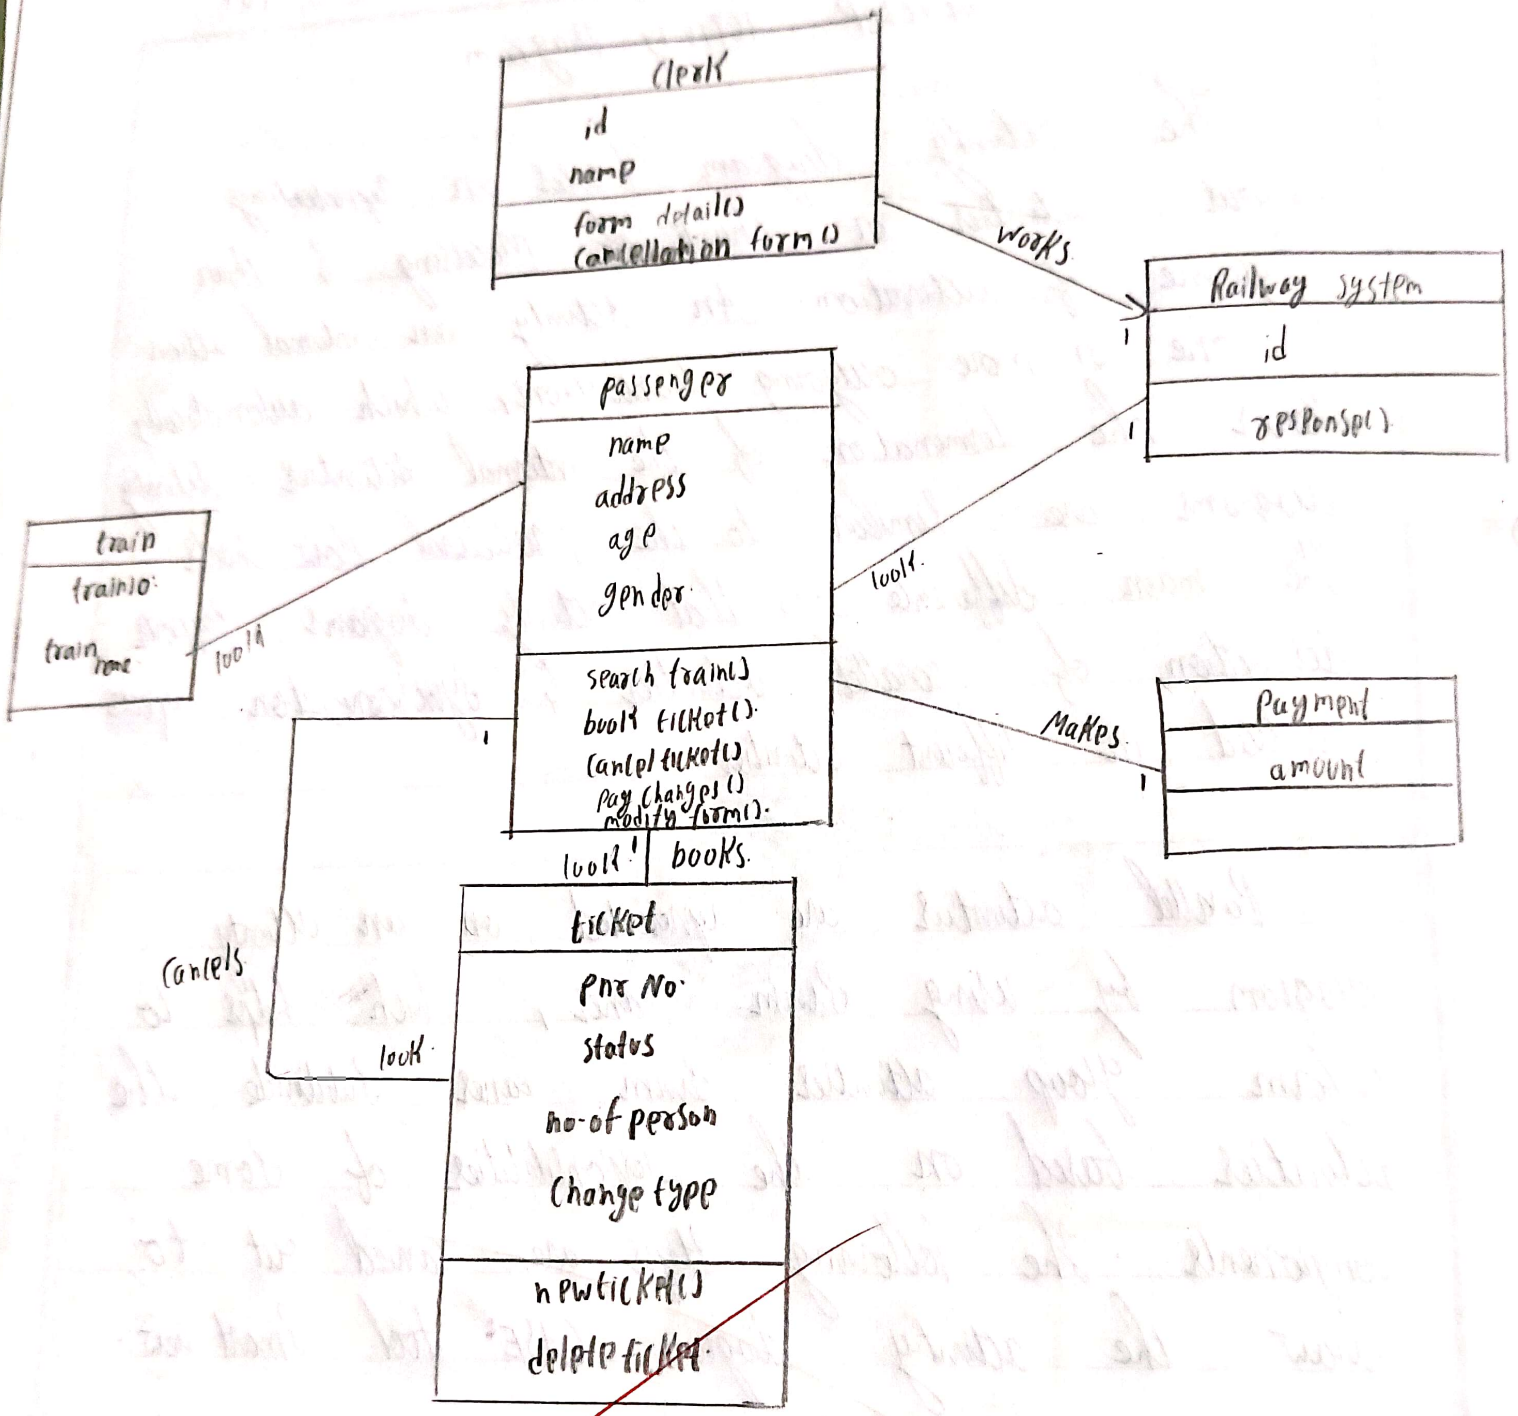 Clerk
id
name
form detail()
Cancellation form()
works
Railway system
id
response()
1
1
passenger
name
address
age
gender.
search train()
book ticket().
Cancel ticket()
pay changes()
modify form().
look.
train
train
name
Makes.
1
Payment
amount
1
books.
Cancels
look.
ticket
pnr No.
status
no-of person
Change type
newticket()
delete ticket.